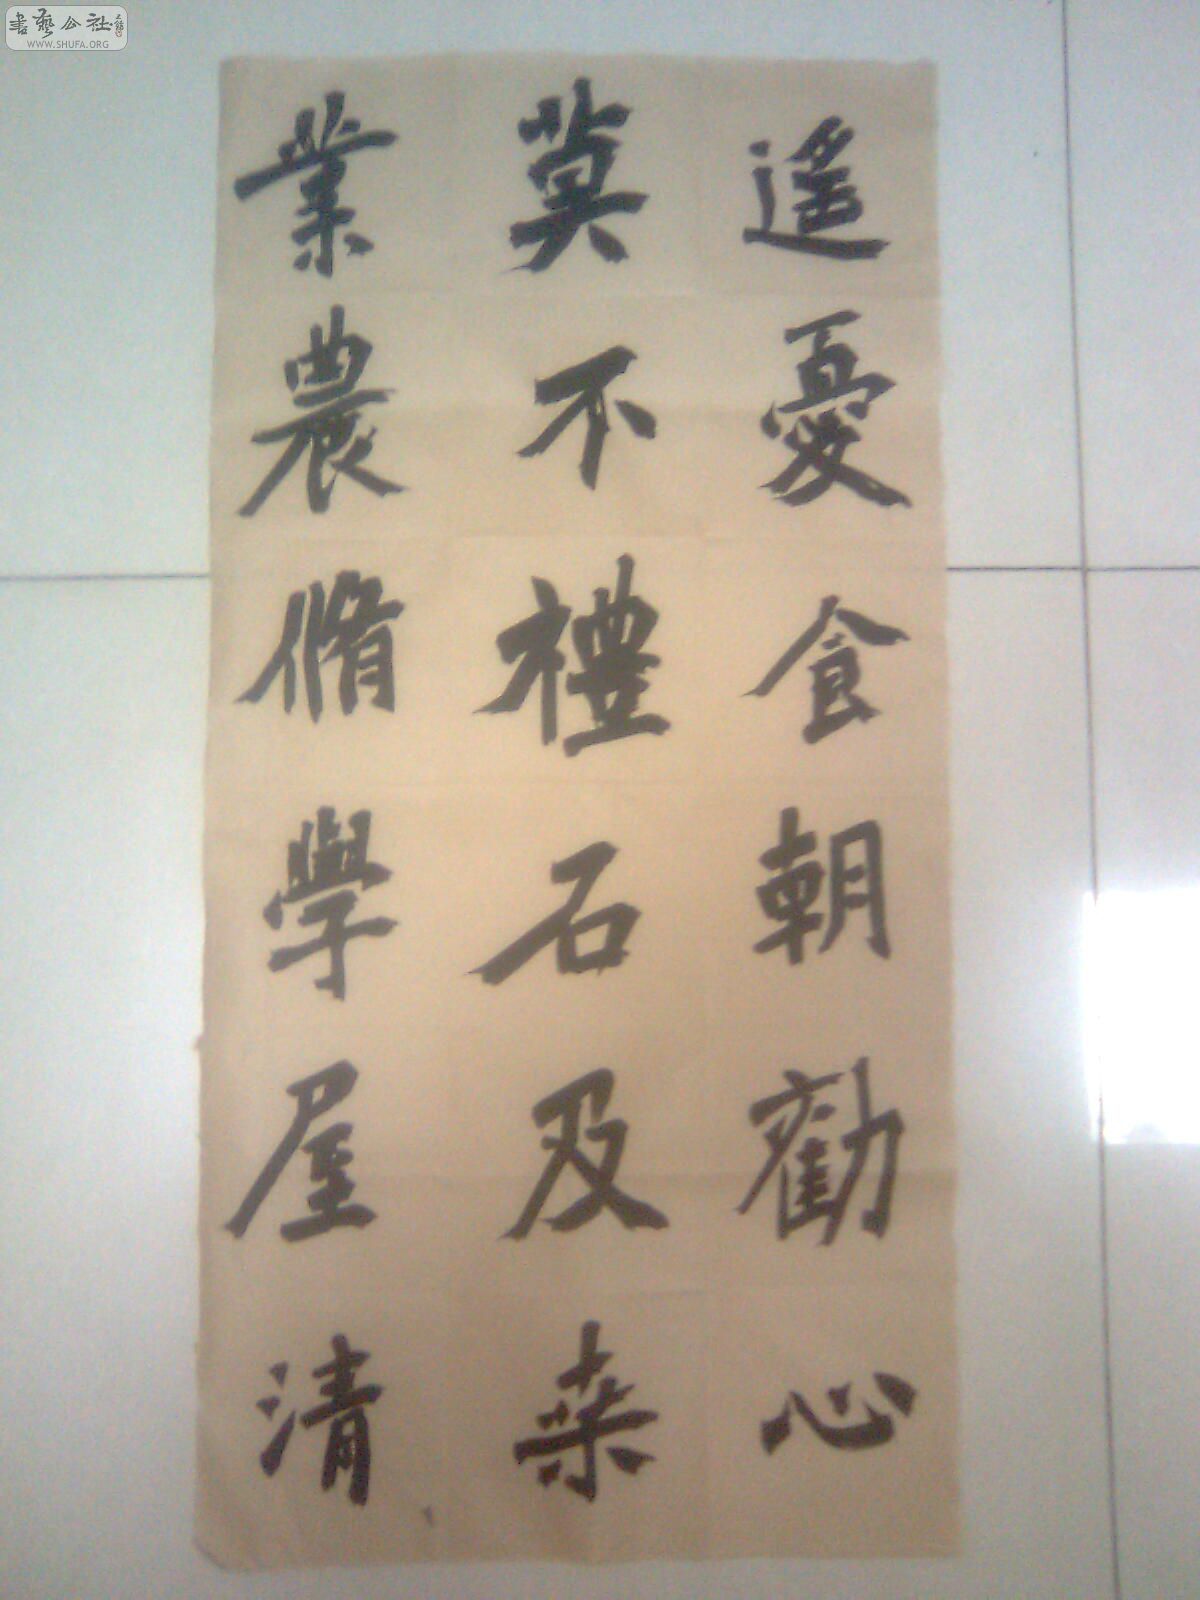 書藝公社
WWW.SHUFA.ORG
遙憂食朝勸心
莫不禮石及桒
業農脩學屋清